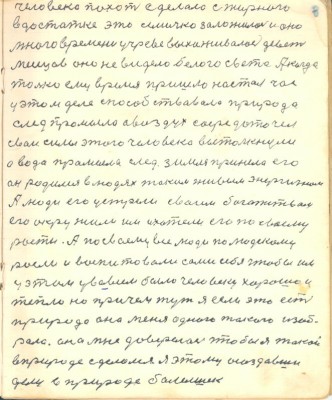 человека похоть сделало с жирного
в достатке это симичко заложилося и оно
много времени у чреве выхаживалос девет
месицов оно не видело белого света А когда
только ему время пришло настал час
у этом деле способствавала природа
след промыло а воздух сосредоточел
сваи силы этого человека вытолкнули
а вода прамыла след. земля приняла его
он родился в людях таким живым энергичном
А люди его устрели сваим богатствам
его окружили им и хотели его по своему
рости. А посваему все люди по модскому
росли и воспитовали сами себя чтобы им
у этим увсвием было человеку хорошо и
тепло но причем тут я если это есть
природа она меня одного такого изоб
рала. она мне доверилас чтобы я такой
в природе сделался я этому создавши
делу в природе балельщек